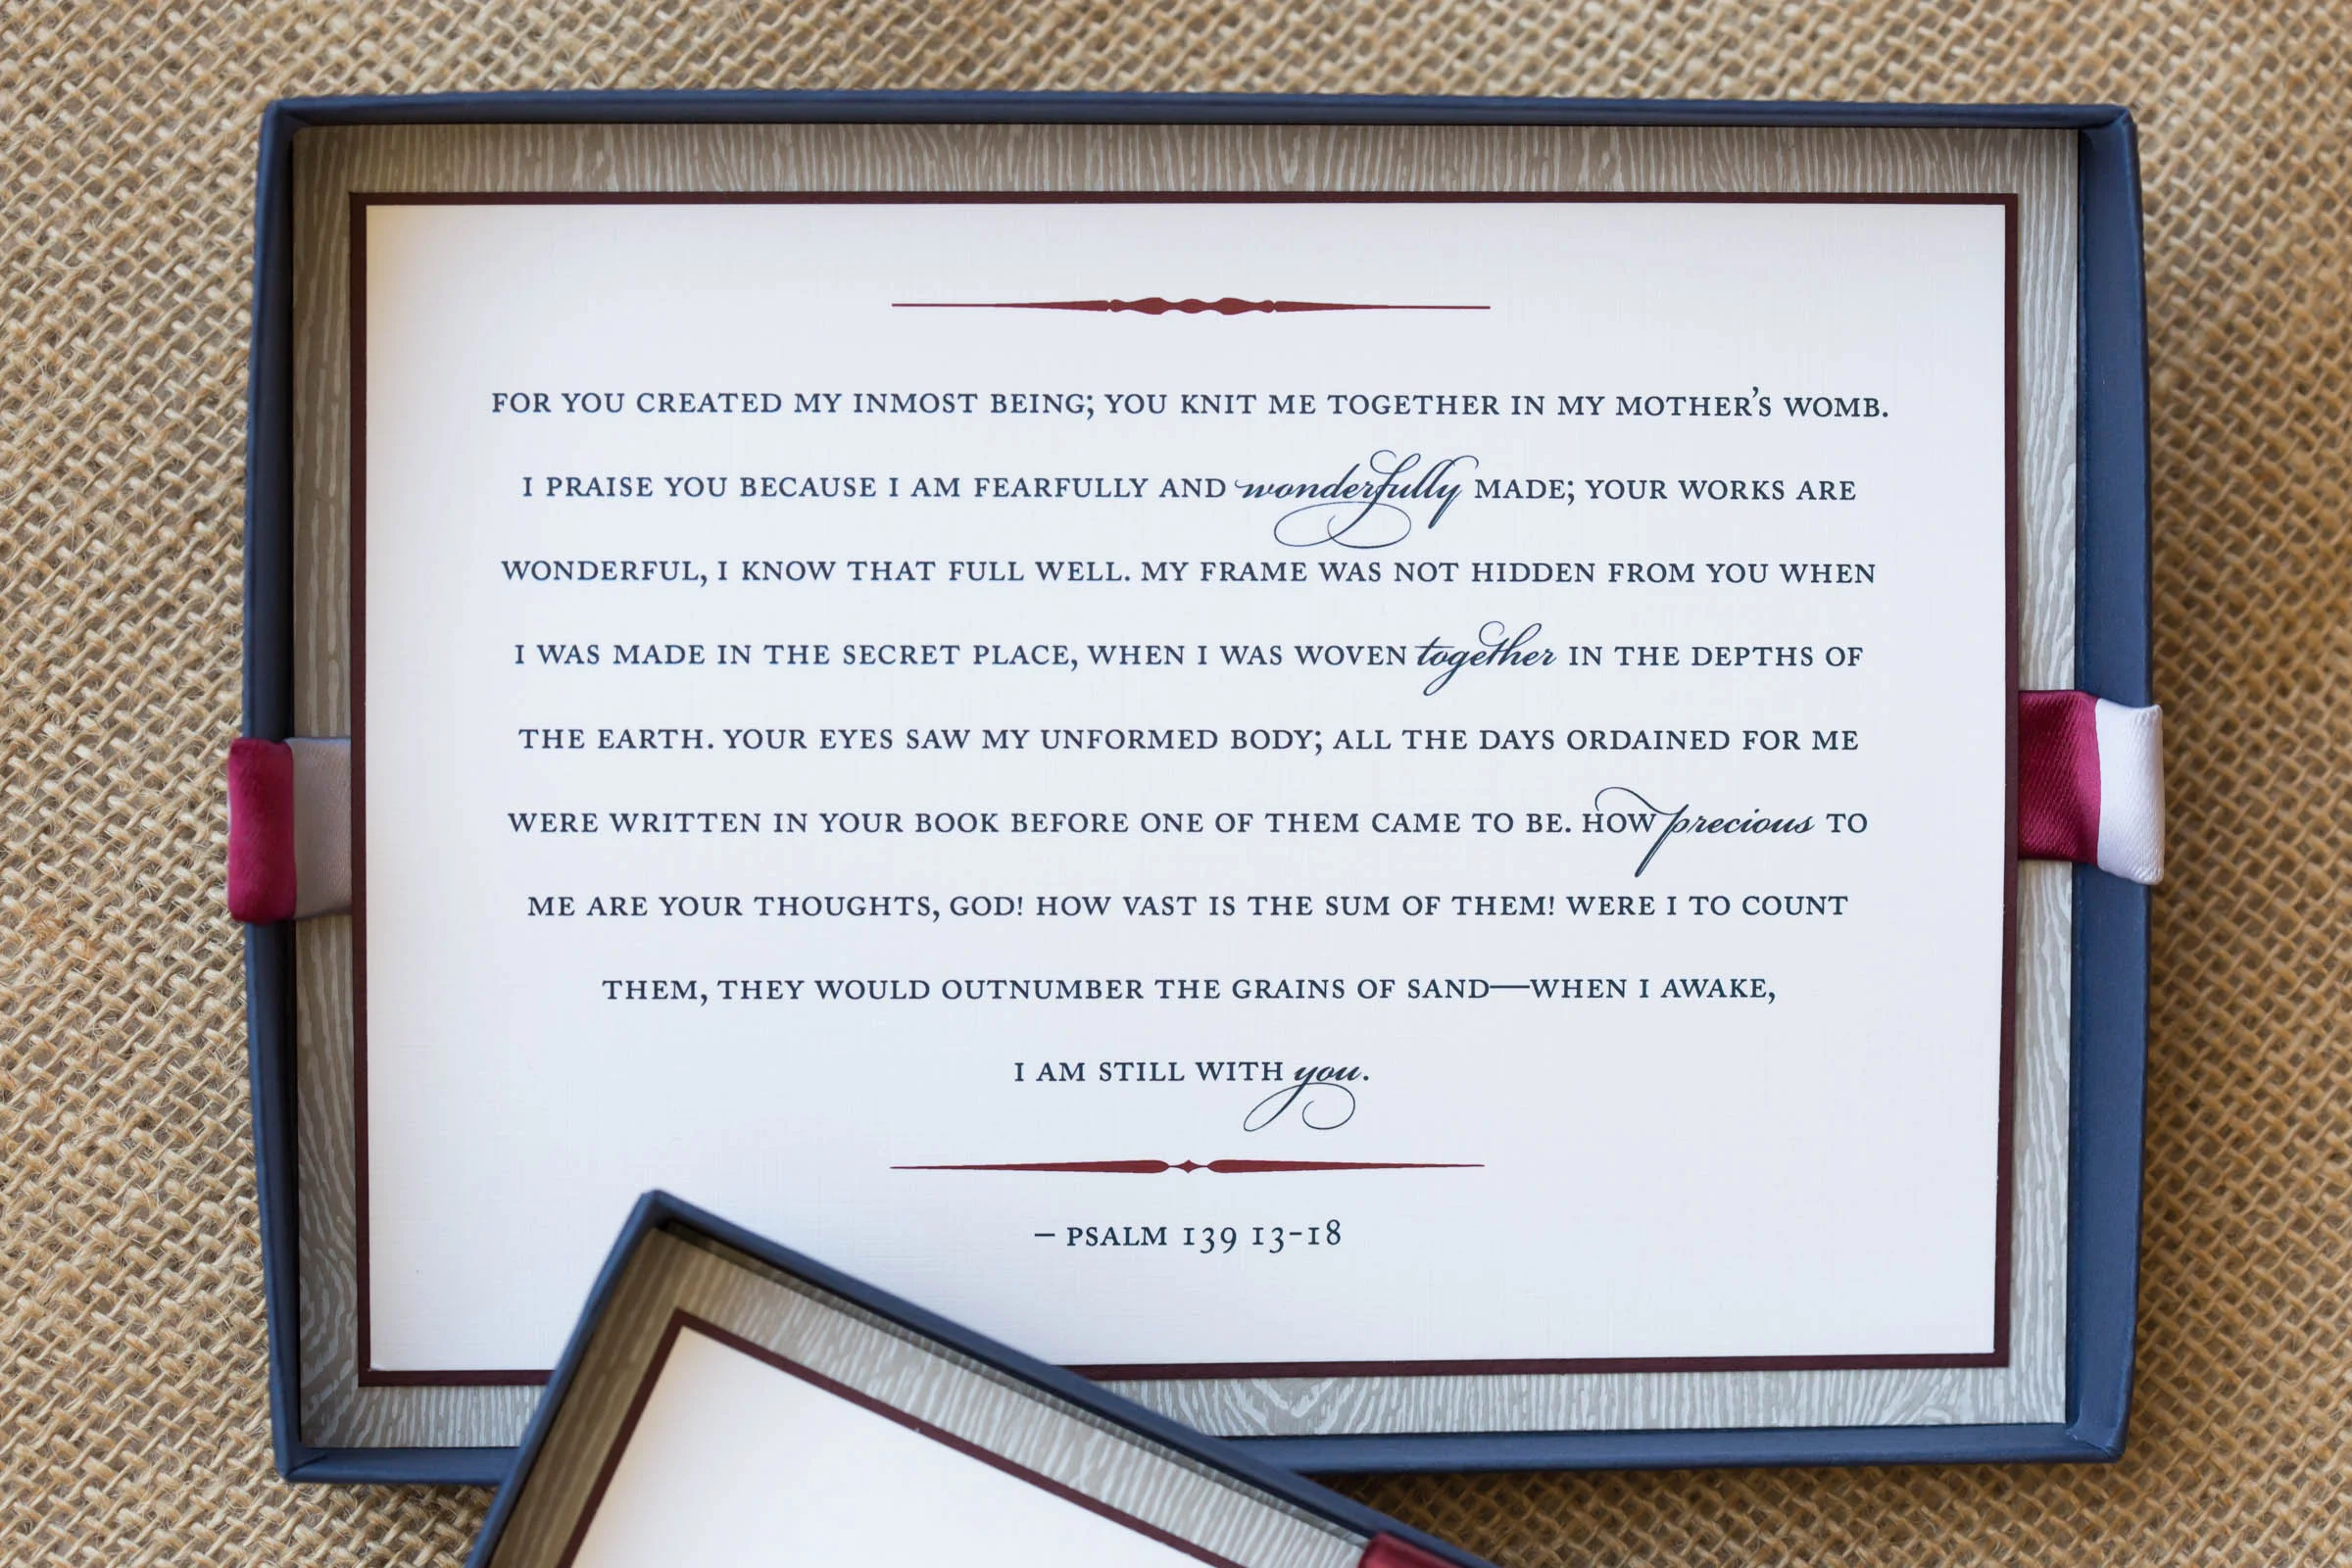 FOR YOU CREATED MY INMOST BEING; YOU KNIT ME TOGETHER IN MY MOTHER'S WOMB.
I PRAISE YOU BECAUSE I AM FEARFULLY AND wonderfully MADE; YOUR WORKS ARE
WONDERFUL, I KNOW THAT FULL WELL. MY FRAME WAS NOT HIDDEN FROM YOU WHEN
I WAS MADE IN THE SECRET PLACE, WHEN I WAS WOVEN together IN THE DEPTHS OF
THE EARTH. YOUR EYES SAW MY UNFORMED BODY; ALL THE DAYS ORDAINED FOR ME
WERE WRITTEN IN YOUR BOOK BEFORE ONE OF THEM CAME TO BE. HOW precious TO
ME ARE YOUR THOUGHTS, GOD! HOW VAST IS THE SUM OF THEM! WERE I TO COUNT
THEM, THEY WOULD OUTNUMBER THE GRAINS OF SAND—WHEN I AWAKE,
I AM STILL WITH you.
– PSALM 139 13-18